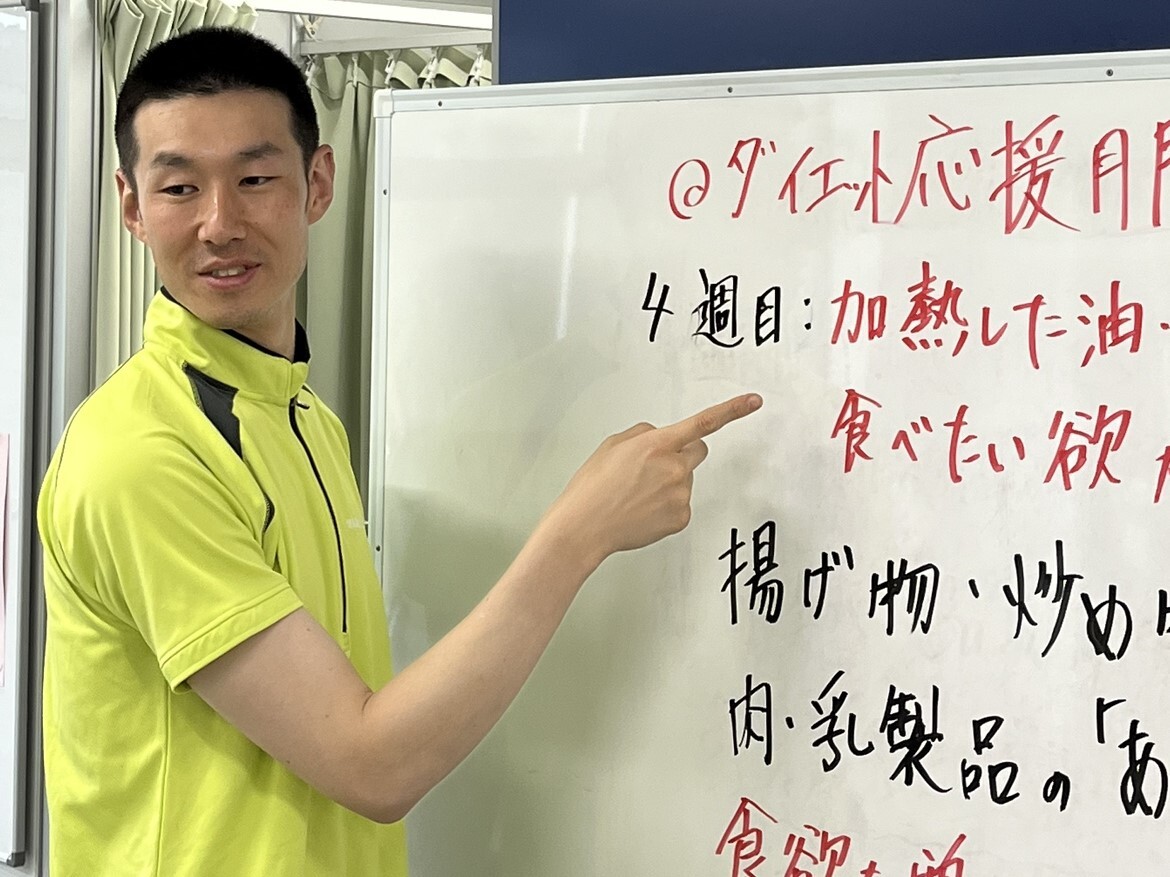 @ダイエット応援月間
4週目：加熱した油・
食べたい欲が
揚げ物・炒め
肉・乳製品の「あ
食欲